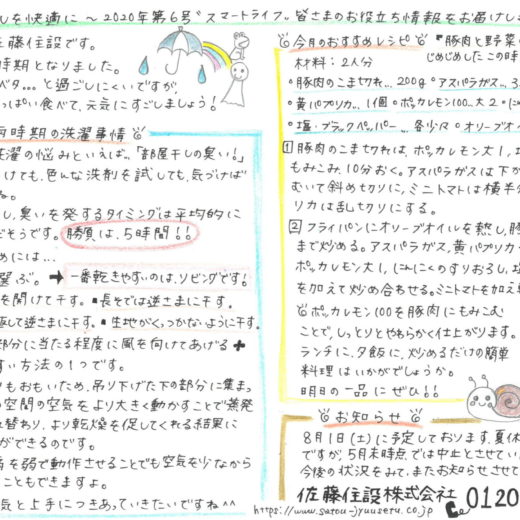 しを快適に ～2020年第6号〝スマートライフ〟皆さまのお役立ち情報をお届けし
佐藤住設です。
時期となりました。
ベタ…と過ごしにくいですが、
っぱい食べて、元気にすごしましょう!
時期の洗濯事情
洗濯の悩みといえば、「部屋干しの臭い!」
けても、色んな洗剤を試しても、気づけば
ね。
し、臭いを発するタイミングは平均的に
だそうです。勝負は、5時間!!
めには…
選ぶ。➡一番乾きやすいのは、リビングです!
を開けて干す。■長そでは逆さまに干す。
返して逆さまに干す。■生地がくっつかないように干す。
部分に当たる程度に風を向けてあげる✚
すい方法の1つです。
りもおもいため、吊り下げた下の部分に集ま
の空間の空気をより大きく動かすことで蒸発
れ替わり、より乾燥を促してくれる結果に
ができるのです。
を弱で動作させることでも空気を少なから
こともできますよ。
気と上手につきあっていきたいですね^^
今月のおすすめレシピ 『豚肉と野菜の
じめじめしたこの時
材料:2人分
・豚肉のこま切れ…200g ・アスパラガス…
・黄パプリカ…1個 ・ポッカレモン100…大2
・塩・ブラックペッパー…各少々 ・オリーブオイ
1 豚肉のこま切れは、ポッカレモン大1、塩
もみこみ、10分おく。アスパラガスは下か
むいて斜め切りに、ミニトマトは横半分
リカは乱切りにする。
2 フライパンにオリーブオイルを熱し、豚
まで炒める。アスパラガス、黄パプリカ
ポッカレモン大1、にんにくのすりおろし、塩
を加えて炒め合わせる。ミニトマトを加え
ポッカレモン100を豚肉にもみこむ
ことで、しっとりとやわらかく仕上がります。
ランチに、夕飯に、炒めるだけの簡単
料理はいかがでしょうか。
明日の一品にぜひ!!
お知らせ
8月1日(土)に予定しております、夏休
ですが、5月末時点では中止としてい
今後の状況をみて、またお知らせさせて
佐藤住設株式会社 0120
https://www.satou-jyuusetu.co.jp